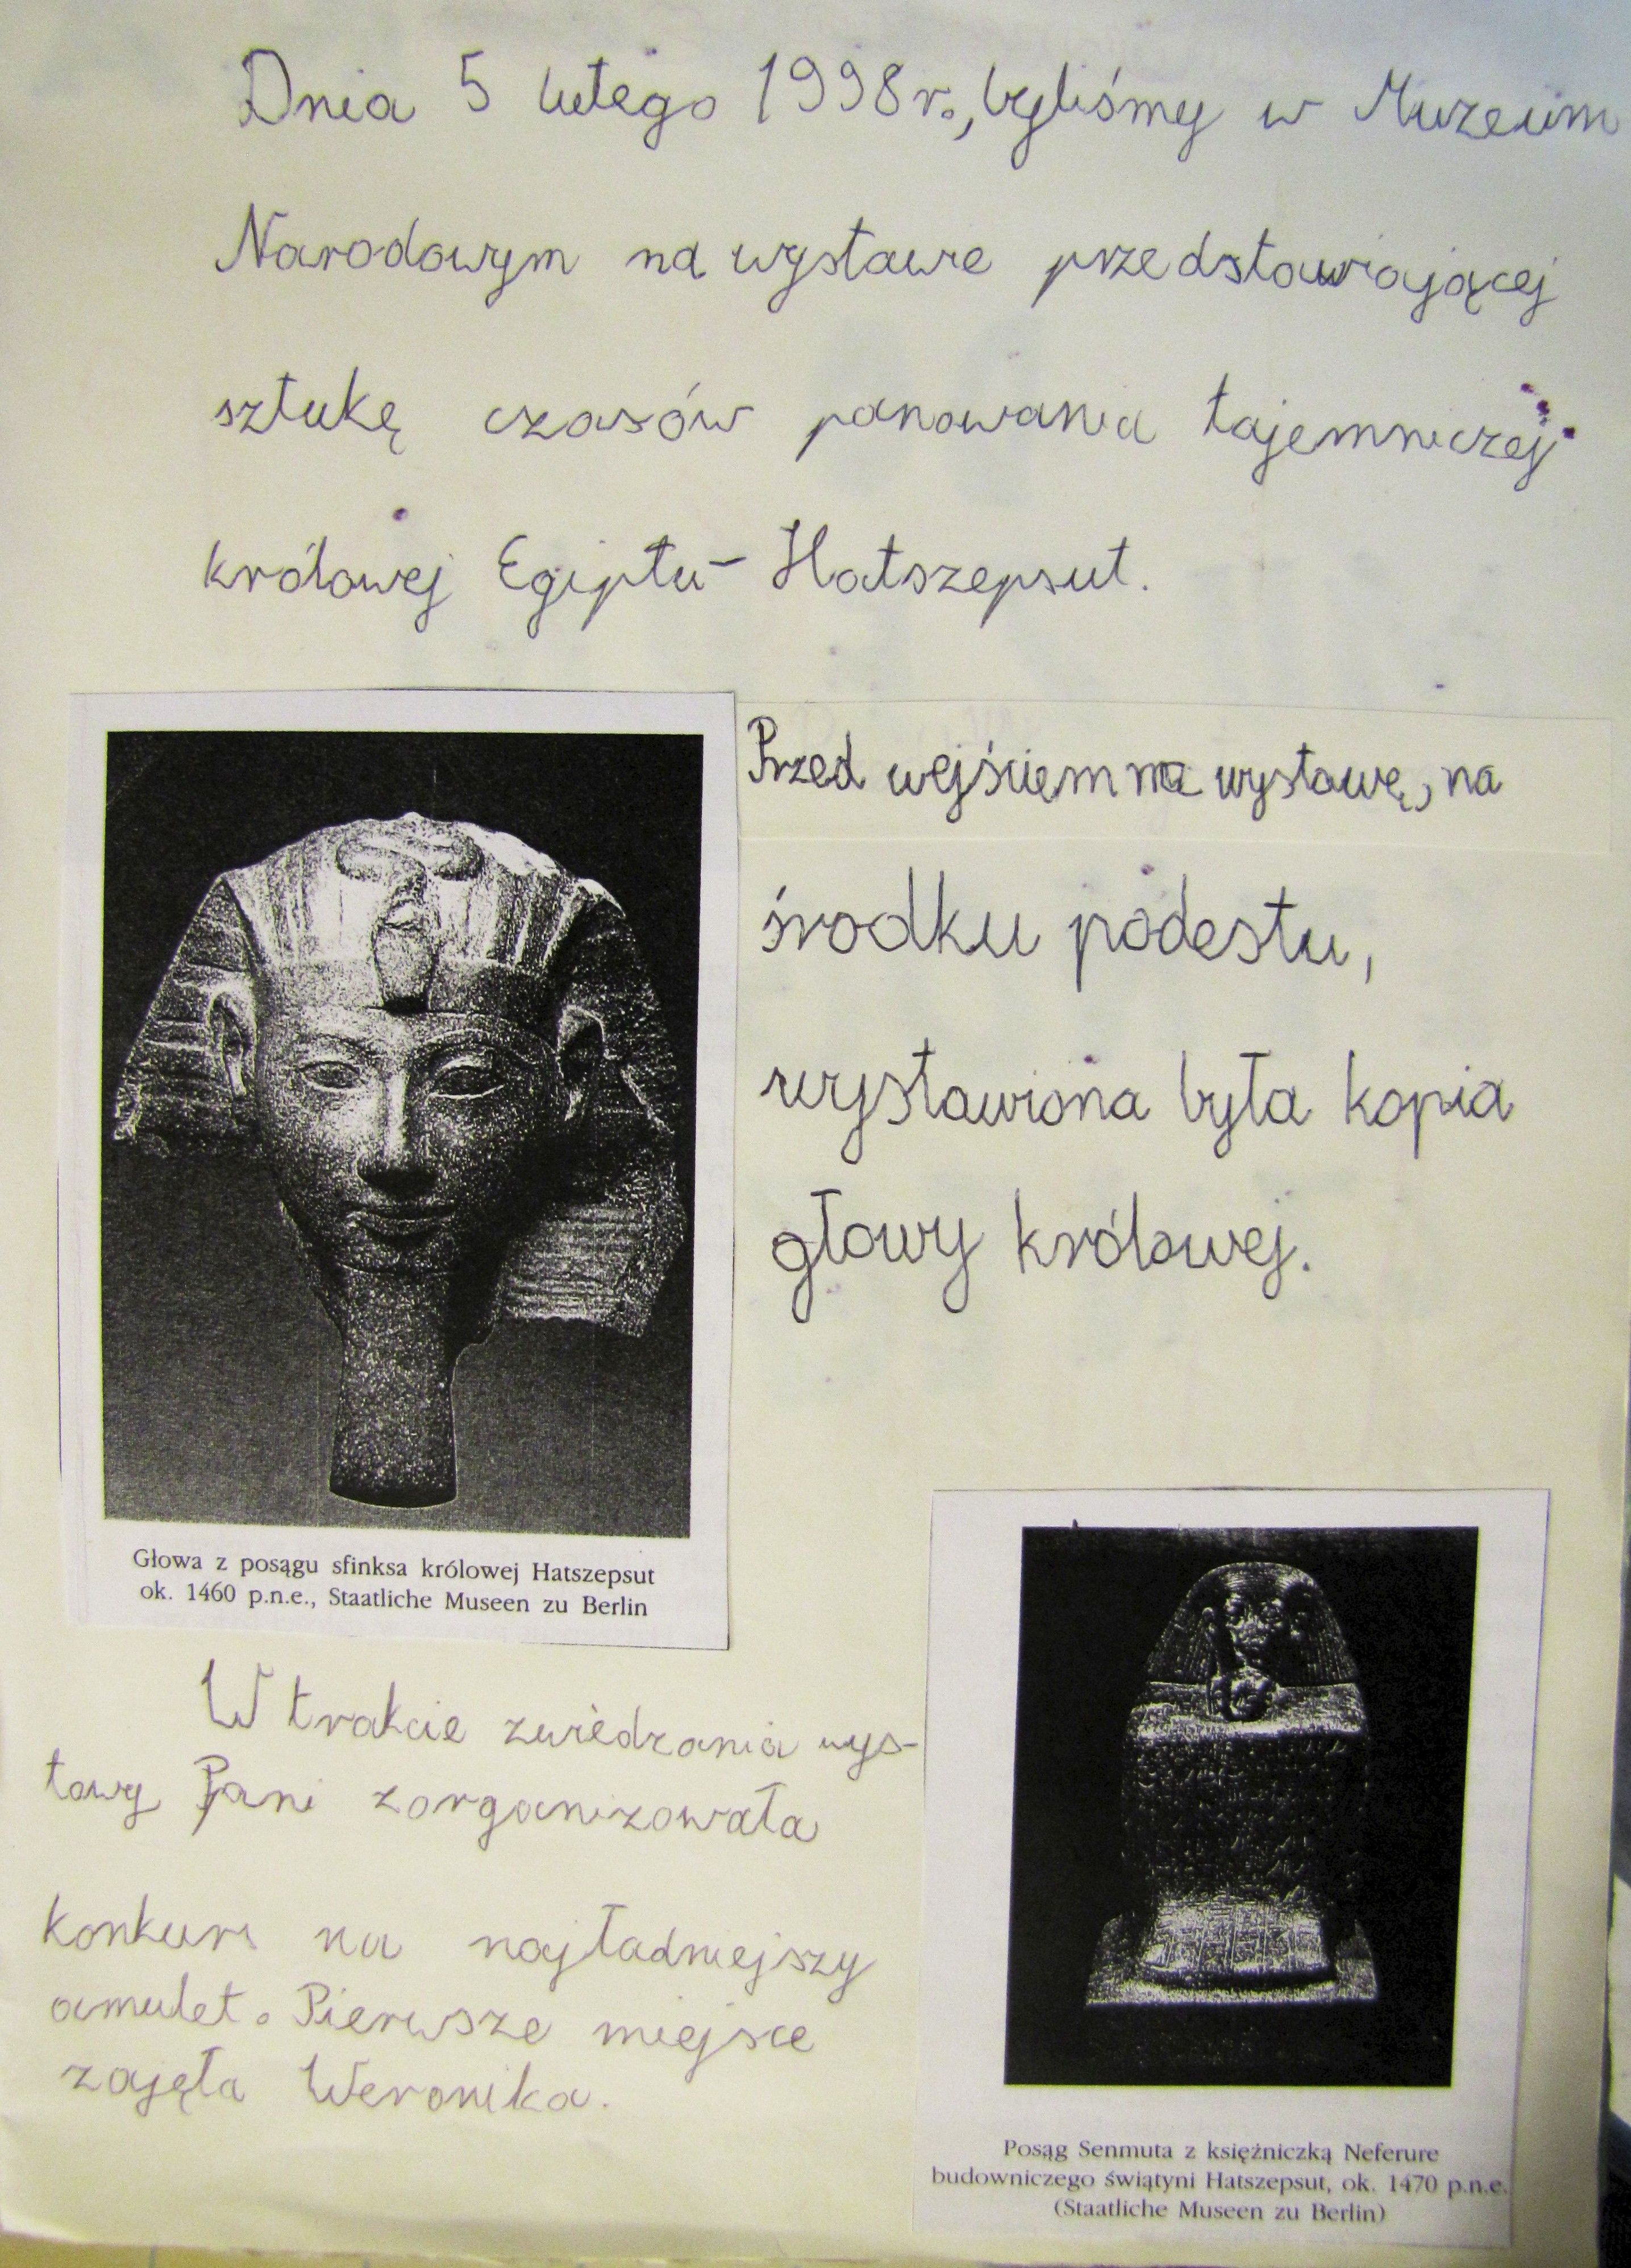 Dnia 5 lutego 1998 r., byliśmy w Muzeum
Narodowym na wystawie przedstawiającej
sztukę czasów panowania tajemniczej
królowej Egiptu - Hatszepsut.
Przed wejściem na wystawę, na
środku podestu,
wystawiona była kopia
głowy królowej.
Głowa z posągu sfinksa królowej Hatszepsut
ok. 1460 p.n.e., Staatliche Museen zu Berlin
W trakcie zwiedzania wys-
tawy Pani zorganizowała
konkurs na najładniejszy
amulet. Pierwsze miejsce
zajęła Weronika.
Posąg Senmuta z księżniczką Neferure
budowniczego świątyni Hatszepsut, ok. 1470 p.n.e.
(Staatliche Museen zu Berlin)